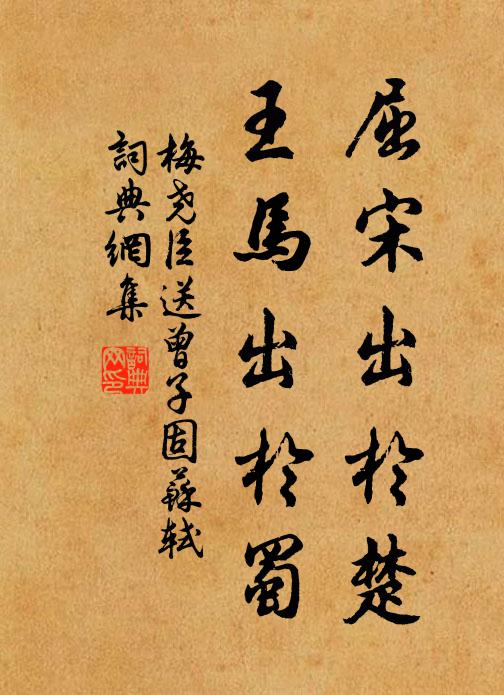 屈宋出於楚
王馬出於蜀
梅尧臣送曾子固蘇軾
詞典網集
詞典網印